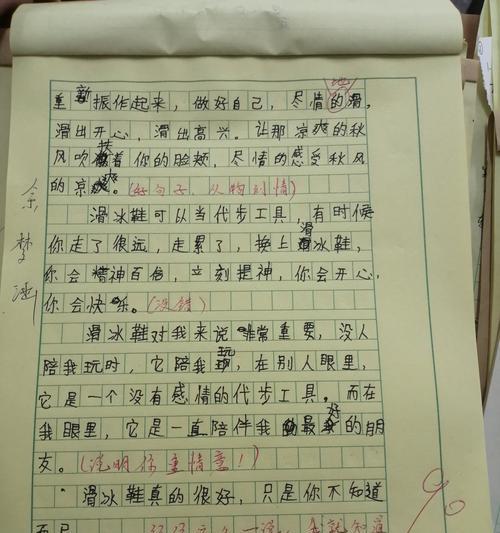 地
重新振作起来，做好自己，尽情的滑，
滑出开心，滑出高兴。让那凉爽的秋
风吹扶着你的脸颊，尽情的感受秋风
的凉爽。(好句子，从物到情)
滑冰鞋可以当代步工具，有时候
你走了很远，走累了，换上滑冰鞋，
你会精神百倍，立刻提神，你会开心，
你会快乐。(没错)
滑冰鞋对我来说非常重要，没人
陪我玩时，它陪我玩，在别人眼里，
它是一个没有感情的代步工具。而在
我眼里，它是一直陪伴我的最好的朋
友。(说明你重情意！)
滑冰鞋真的很好，只是你不知道
而已
我就知道
余梦
90